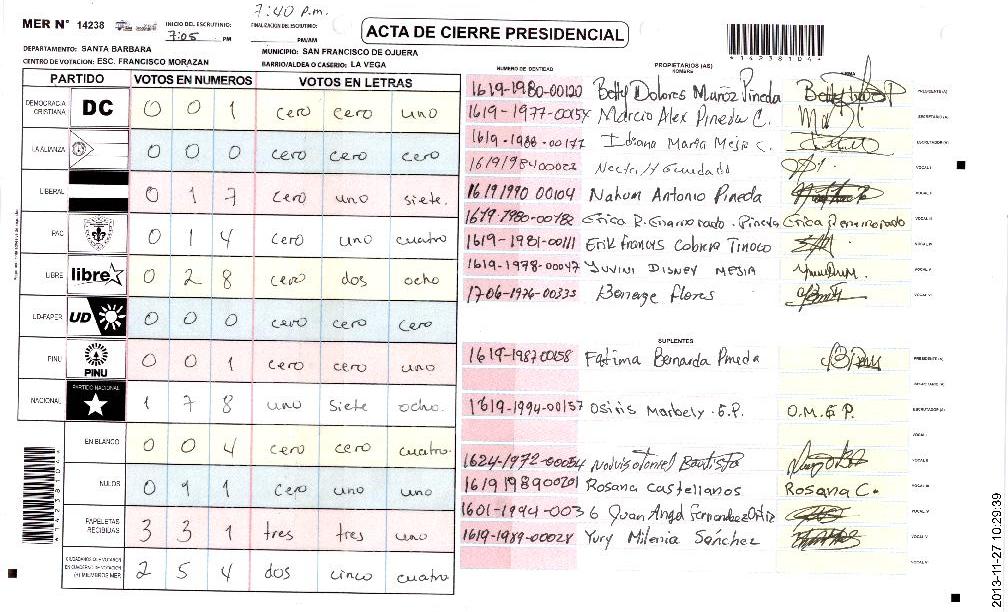 7:40 p.m.
MER N° 14238
INICIO DEL ESCRUTINIO: 7:05 PM
FINALIZACION DEL ESCRUTINIO: PM/AM
ACTA DE CIERRE PRESIDENCIAL
DEPARTAMENTO: SANTA BARBARA
MUNICIPIO: SAN FRANCISCO DE OJUERA
CENTRO DE VOTACION: ESC. FRANCISCO MORAZAN
BARRIO/ALDEA O CASERIO: LA VEGA
41423810 4
PARTIDO VOTOS EN NUMEROS VOTOS EN LETRAS
DEMOCRACIA CRISTIANA DC 0 0 1 cero cero uno
LA ALIANZA 0 0 0 cero cero cero
LIBERAL 0 1 7 cero uno siete.
PAC 0 1 4 cero uno cuatro
LIBRE libre 0 2 8 cero dos ocho
UD-FAPER UD 0 0 0 cero cero cero
PINU PINU 0 0 1 cero cero uno
NACIONAL PARTIDO NACIONAL 1 7 8 uno siete ocho.
EN BLANCO 0 0 4 cero cero cuatro.
NULOS 0 1 1 cero uno uno
PAPELETAS RECIBIDAS 3 3 1 tres tres uno
CIUDADANOS QUE VOTARON EN CUADERNO DE VOTACION (+) MIEMBROS MER 2 5 4 dos cinco cuatro
NUMERO DE IDENTIDAD PROPIETARIOS (AS) NOMBRE FIRMA
1619-1980-00120 Betty Dolores Muñoz Pineda PRESIDENTE (A)
1619-1977-00154 Marcio Alex Pineda C. SECRETARIO (A)
1619-1988-00177 Idiana Maria Mejia C. ESCRUTADOR (A)
1619198400022 VOCAL I
1619 1990 00104 Nahum Antonio Pineda VOCAL II
1619-1980-00782 Erica R. Enamorado. Pineda Erica R enamorado VOCAL III
1619-1981-00111 Erik francis Cabrera Tinoco VOCAL IV
1619-1978-00047 Yuvini Disney Mejia VOCAL V
1706-1976-00333 Flores VOCAL VI
SUPLENTES
1619-1987-00158 Fatima Bernarda Pineda PRESIDENTE (A)
SECRETARIO (A)
1619-1994-00157 Osiris Marbely .E.P. O.M.E P. ESCRUTADOR (A)
VOCAL I
1624-1972-00054 Bautista VOCAL II
1619 1989 00201 Rosana Castellanos Rosana C. VOCAL III
1601-1994-003 6 Juan Angel Fernandez Ortiz VOCAL IV
1619-1989-00028 Yury Milenia Sanchez VOCAL V
VOCAL VI
2013-11-27 10:29:39